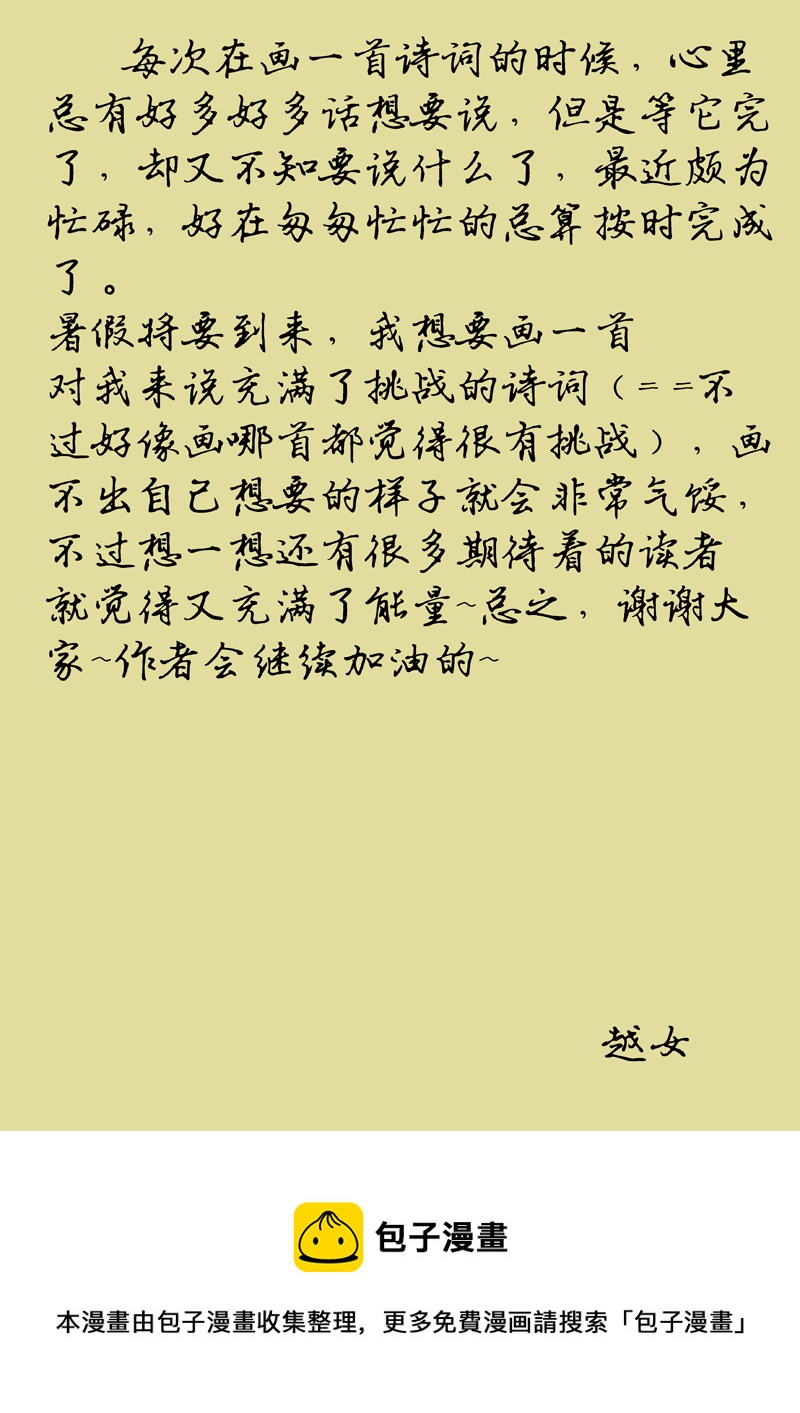 每次在画一首诗词的时候，心里
总有好多好多话想要说，但是等它完
了，却又不知要说什么了，最近颇为
忙碌，好在匆匆忙忙的总算按时完成
了。
暑假将要到来，我想要画一首
对我来说充满了挑战的诗词（==不
过好像画哪首都觉得很有挑战），画
不出自己想要的样子就会非常气馁，
不过想一想还有很多期待着的读者
就觉得又充满了能量~总之，谢谢大
家~作者会继续加油的~
越女
包子漫畫
本漫畫由包子漫畫收集整理，更多免費漫画請搜索「包子漫畫」